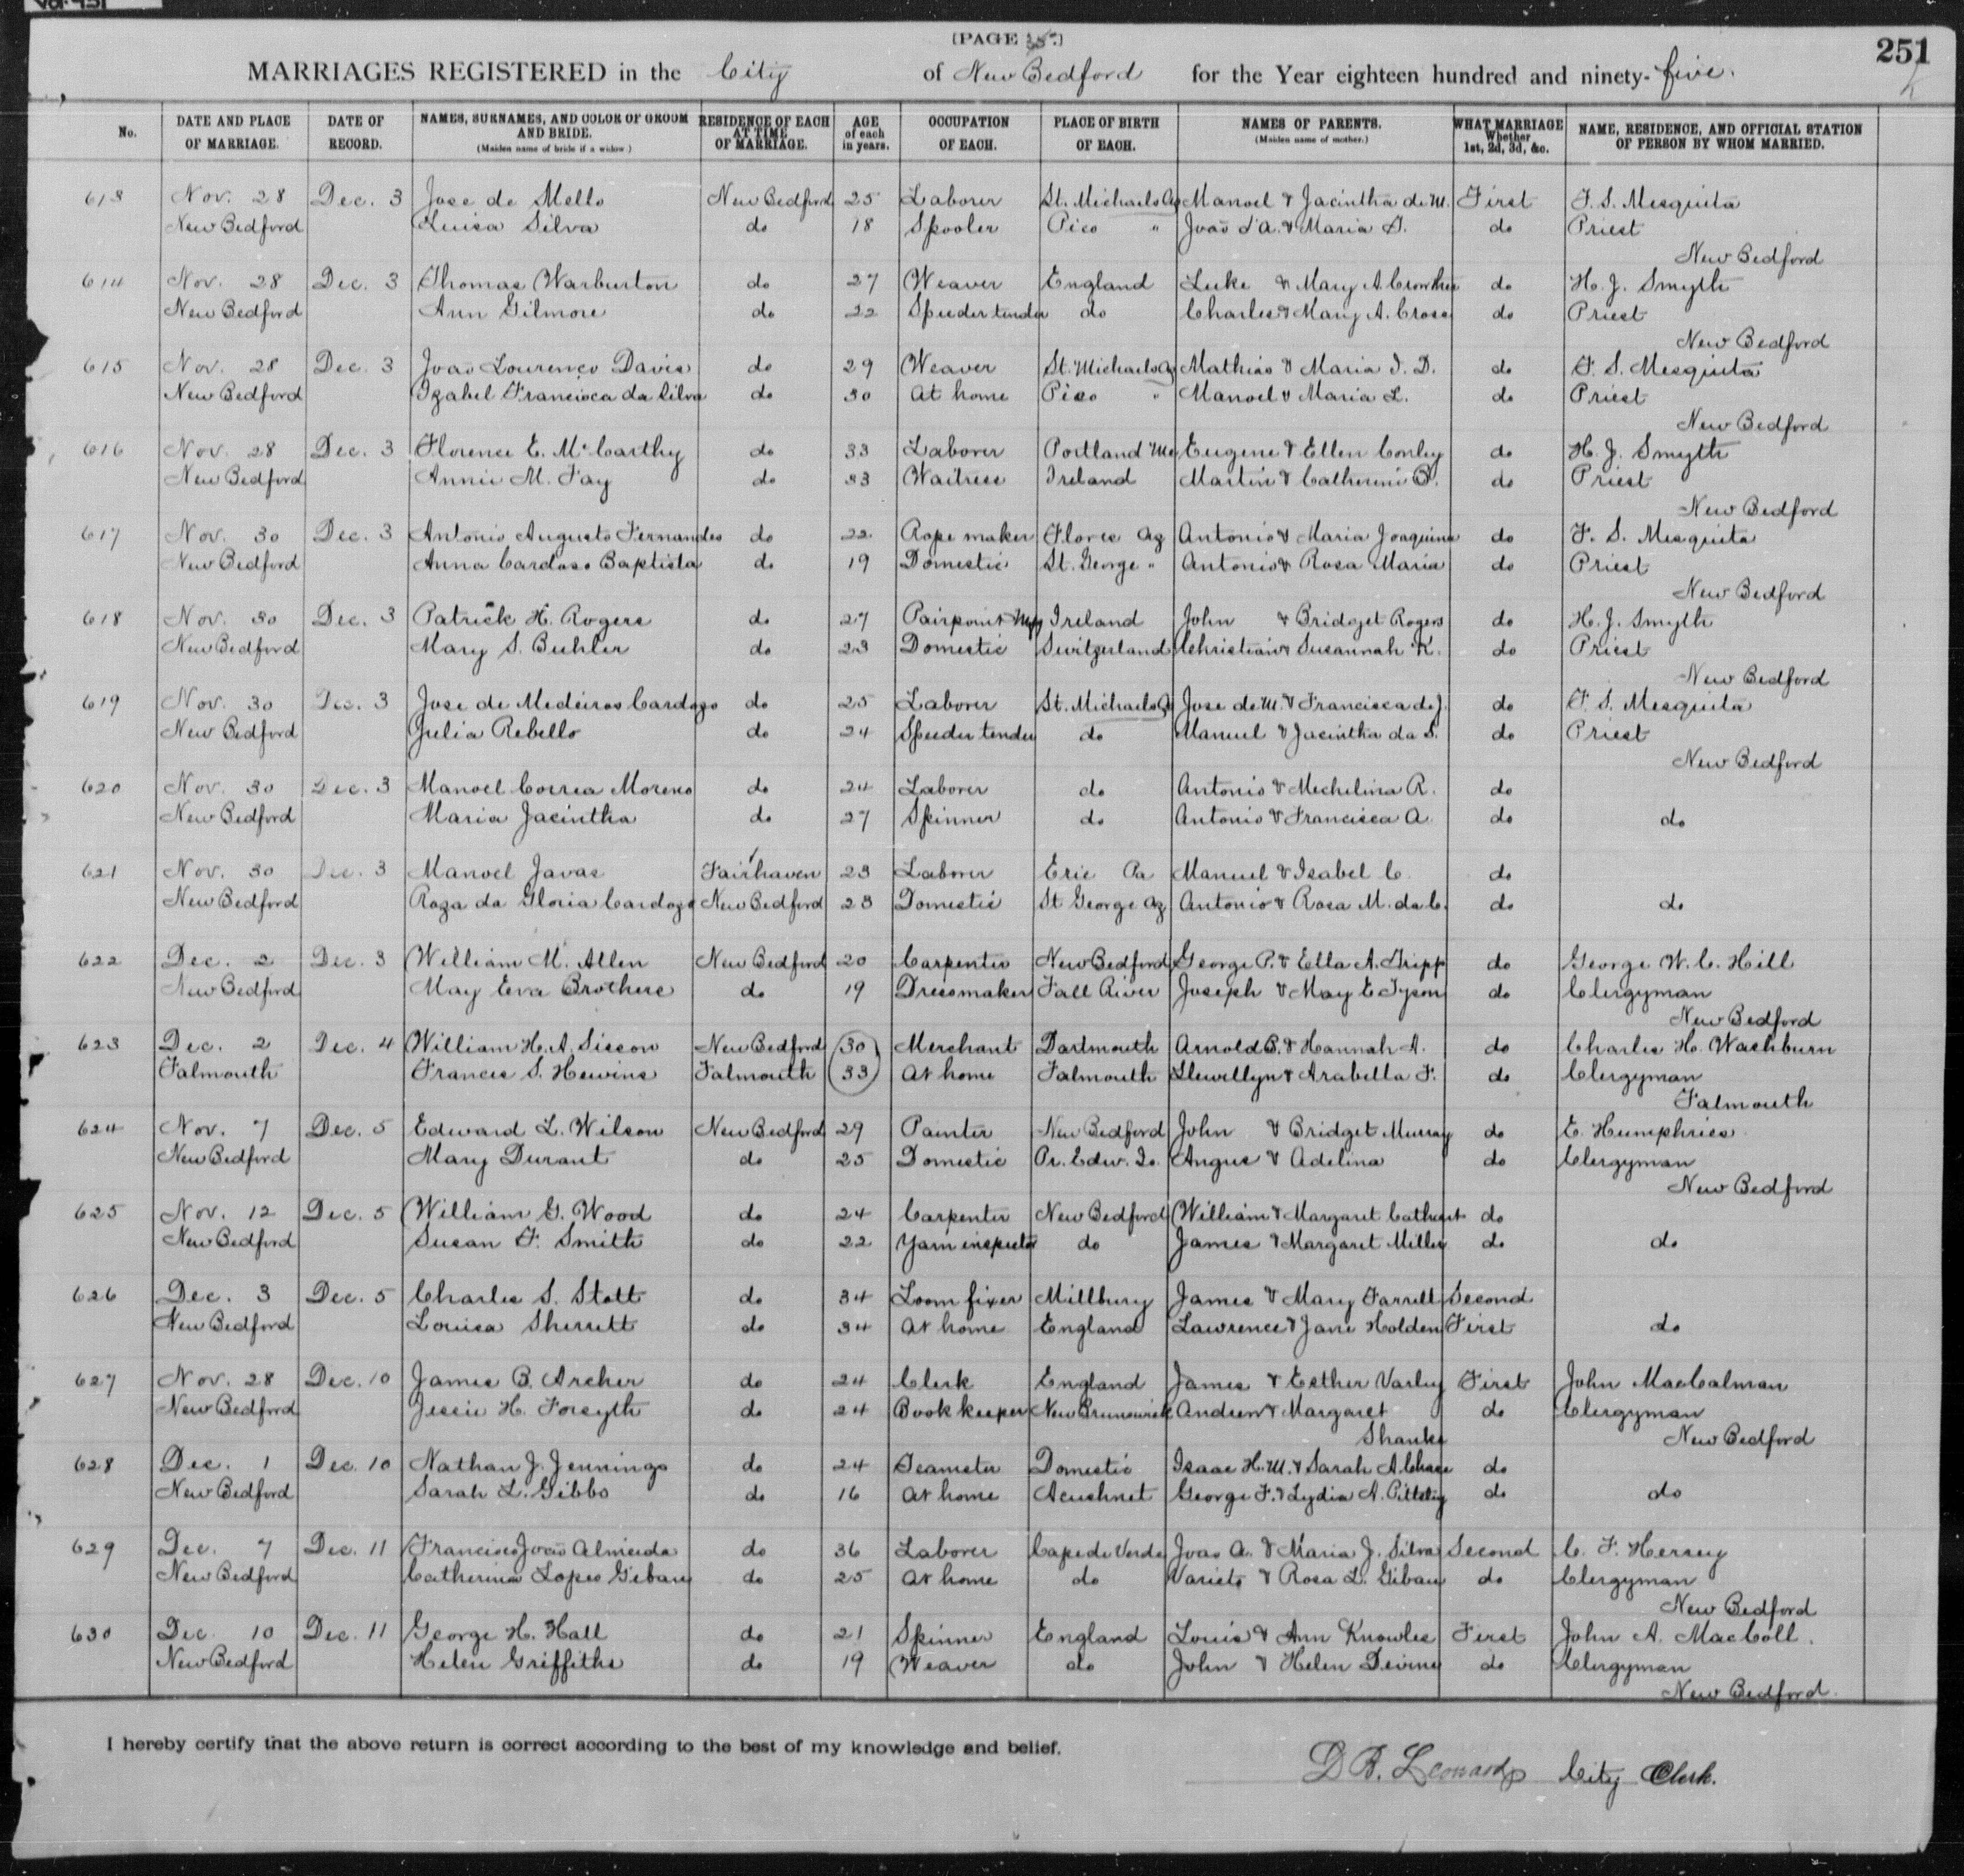 Vol. 451
[PAGE 35.]
251
MARRIAGES REGISTERED in the City of New Bedford for the Year eighteen hundred and ninety-five.
No. DATE AND PLACE OF MARRIAGE. DATE OF RECORD. NAMES, SURNAMES, AND COLOR OF GROOM AND BRIDE. (Maiden name of bride if a widow.) RESIDENCE OF EACH AT TIME OF MARRIAGE. AGE of each in years. OCCUPATION OF EACH. PLACE OF BIRTH OF EACH. NAMES OF PARENTS. (Maiden name of mother.) WHAT MARRIAGE Whether 1st, 2d, 3d, &c. NAME, RESIDENCE, AND OFFICIAL STATION OF PERSON BY WHOM MARRIED.
613 Nov. 28 Dec. 3 Jose de Mello New Bedford 25 Laborer St. Michaels Az Manoel & Jacintha de M. First F. S. Mesquita
New Bedford Luisa Silva do 18 Spooler Pico " João S A. & Maria S. do Priest
New Bedford
614 Nov. 28 Dec. 3 Thomas Warburton do 27 Weaver England Luke & Mary A. Crowther do H. J. Smyth
New Bedford Ann Gilmore do 22 Speeder tender do Charles & Mary A. Cross do Priest
New Bedford
615 Nov. 28 Dec. 3 João Lourenço Davis do 29 Weaver St. Michaels Az Mathias & Maria I. D. do F. S. Mesquita
New Bedford Izabel Francisca da Silva do 30 At home Pico " Manoel & Maria L. do Priest
New Bedford
616 Nov. 28 Dec. 3 Florence E. McCarthy do 33 Laborer Portland Me Eugene & Ellen Conley do H. J. Smyth
New Bedford Annie M. Fay do 33 Waitress Ireland Martin & Catherine B. do Priest
New Bedford
617 Nov. 30 Dec. 3 Antonio Augusto Fernandes do 22 Rope maker Flores Az Antonio & Maria Joaquina do F. S. Mesquita
New Bedford Anna Cardoso Baptista do 19 Domestic St. George " Antonio & Rosa Maria do Priest
New Bedford
618 Nov. 30 Dec. 3 Patrick H. Rogers do 27 Pairpoint Mfg Ireland John & Bridget Rogers do H. J. Smyth
New Bedford Mary S. Buhler do 23 Domestic Switzerland Christian & Susannah K. do Priest
New Bedford
619 Nov. 30 Dec. 3 Jose de Medeiros Cardozo do 25 Laborer St. Michaels Az Jose de M. & Francisca de J. do F. S. Mesquita
New Bedford Julia Rebello do 24 Speeder tender do Manuel & Jacintha da S. do Priest
New Bedford
620 Nov. 30 Dec. 3 Manoel Correa Moreno do 24 Laborer do Antonio & Mechelina R. do
New Bedford Maria Jacintha do 27 Spinner do Antonio & Francisca A. do do
621 Nov. 30 Dec. 3 Manoel Javas Fairhaven 23 Laborer Erie Pa Manuel & Isabel C. do
New Bedford Roza da Gloria Cardozo New Bedford 23 Domestic St George Az Antonio & Rosa M. da C. do do
622 Dec. 2 Dec. 3 William M. Allen New Bedford 20 Carpenter New Bedford George P. & Ella A. Tripp do George W. C. Hill
New Bedford May Eva Brothers do 19 Dressmaker Fall River Joseph & May E Tyson do Clergyman
New Bedford
623 Dec. 2 Dec. 4 William H. A. Sisson New Bedford 30 Merchant Dartmouth Arnold B. & Hannah A. do Charles H. Washburn
Falmouth Frances S. Hewins Falmouth 33 At home Falmouth Llewellyn & Arabella F. do Clergyman
Falmouth
624 Nov. 7 Dec. 5 Edward L. Wilson New Bedford 29 Painter New Bedford John & Bridget Murray do E. Humphries
New Bedford Mary Durant do 25 Domestic Pr. Edw. Is. Angus & Adelina do Clergyman
New Bedford
625 Nov. 12 Dec. 5 William G. Wood do 24 Carpenter New Bedford William & Margaret Cathcart do
New Bedford Susan F. Smith do 22 Yarn inspector do James & Margaret Miller do do
626 Dec. 3 Dec. 5 Charles S. Stott do 34 Loom fixer Millbury James & Mary Farrell Second
New Bedford Louisa Sherrett do 34 At home England Lawrence & Jane Holden First do
627 Nov. 28 Dec. 10 James B. Archer do 24 Clerk England James & Esther Varley First John MacCalman
New Bedford Jessie H. Forsyth do 24 Book keeper New Brunswick Andrew & Margaret do Clergyman
Shanks New Bedford
628 Dec. 1 Dec. 10 Nathan J. Jennings do 24 Teamster Domestic Isaac H. M. & Sarah A. Chase do
New Bedford Sarah L. Gibbs do 16 At home Acushnet George F. & Lydia A. do do
629 Dec. 7 Dec. 11 Francisco João Almeida do 36 Laborer Cape de Verde Joao A. & Maria J. Silva Second C. F. Hersey
New Bedford Catherina Lopes Gibau do 25 At home do Varisto & Rosa L. Gibau do Clergyman
New Bedford
630 Dec. 10 Dec. 11 George H. Hall do 21 Spinner England Louis & Ann Knowles First John A. MacColl.
New Bedford Helen Griffiths do 19 Weaver do John & Helen Devine do Clergyman
New Bedford.
I hereby certify that the above return is correct according to the best of my knowledge and belief.
D B. Leonard City Clerk.